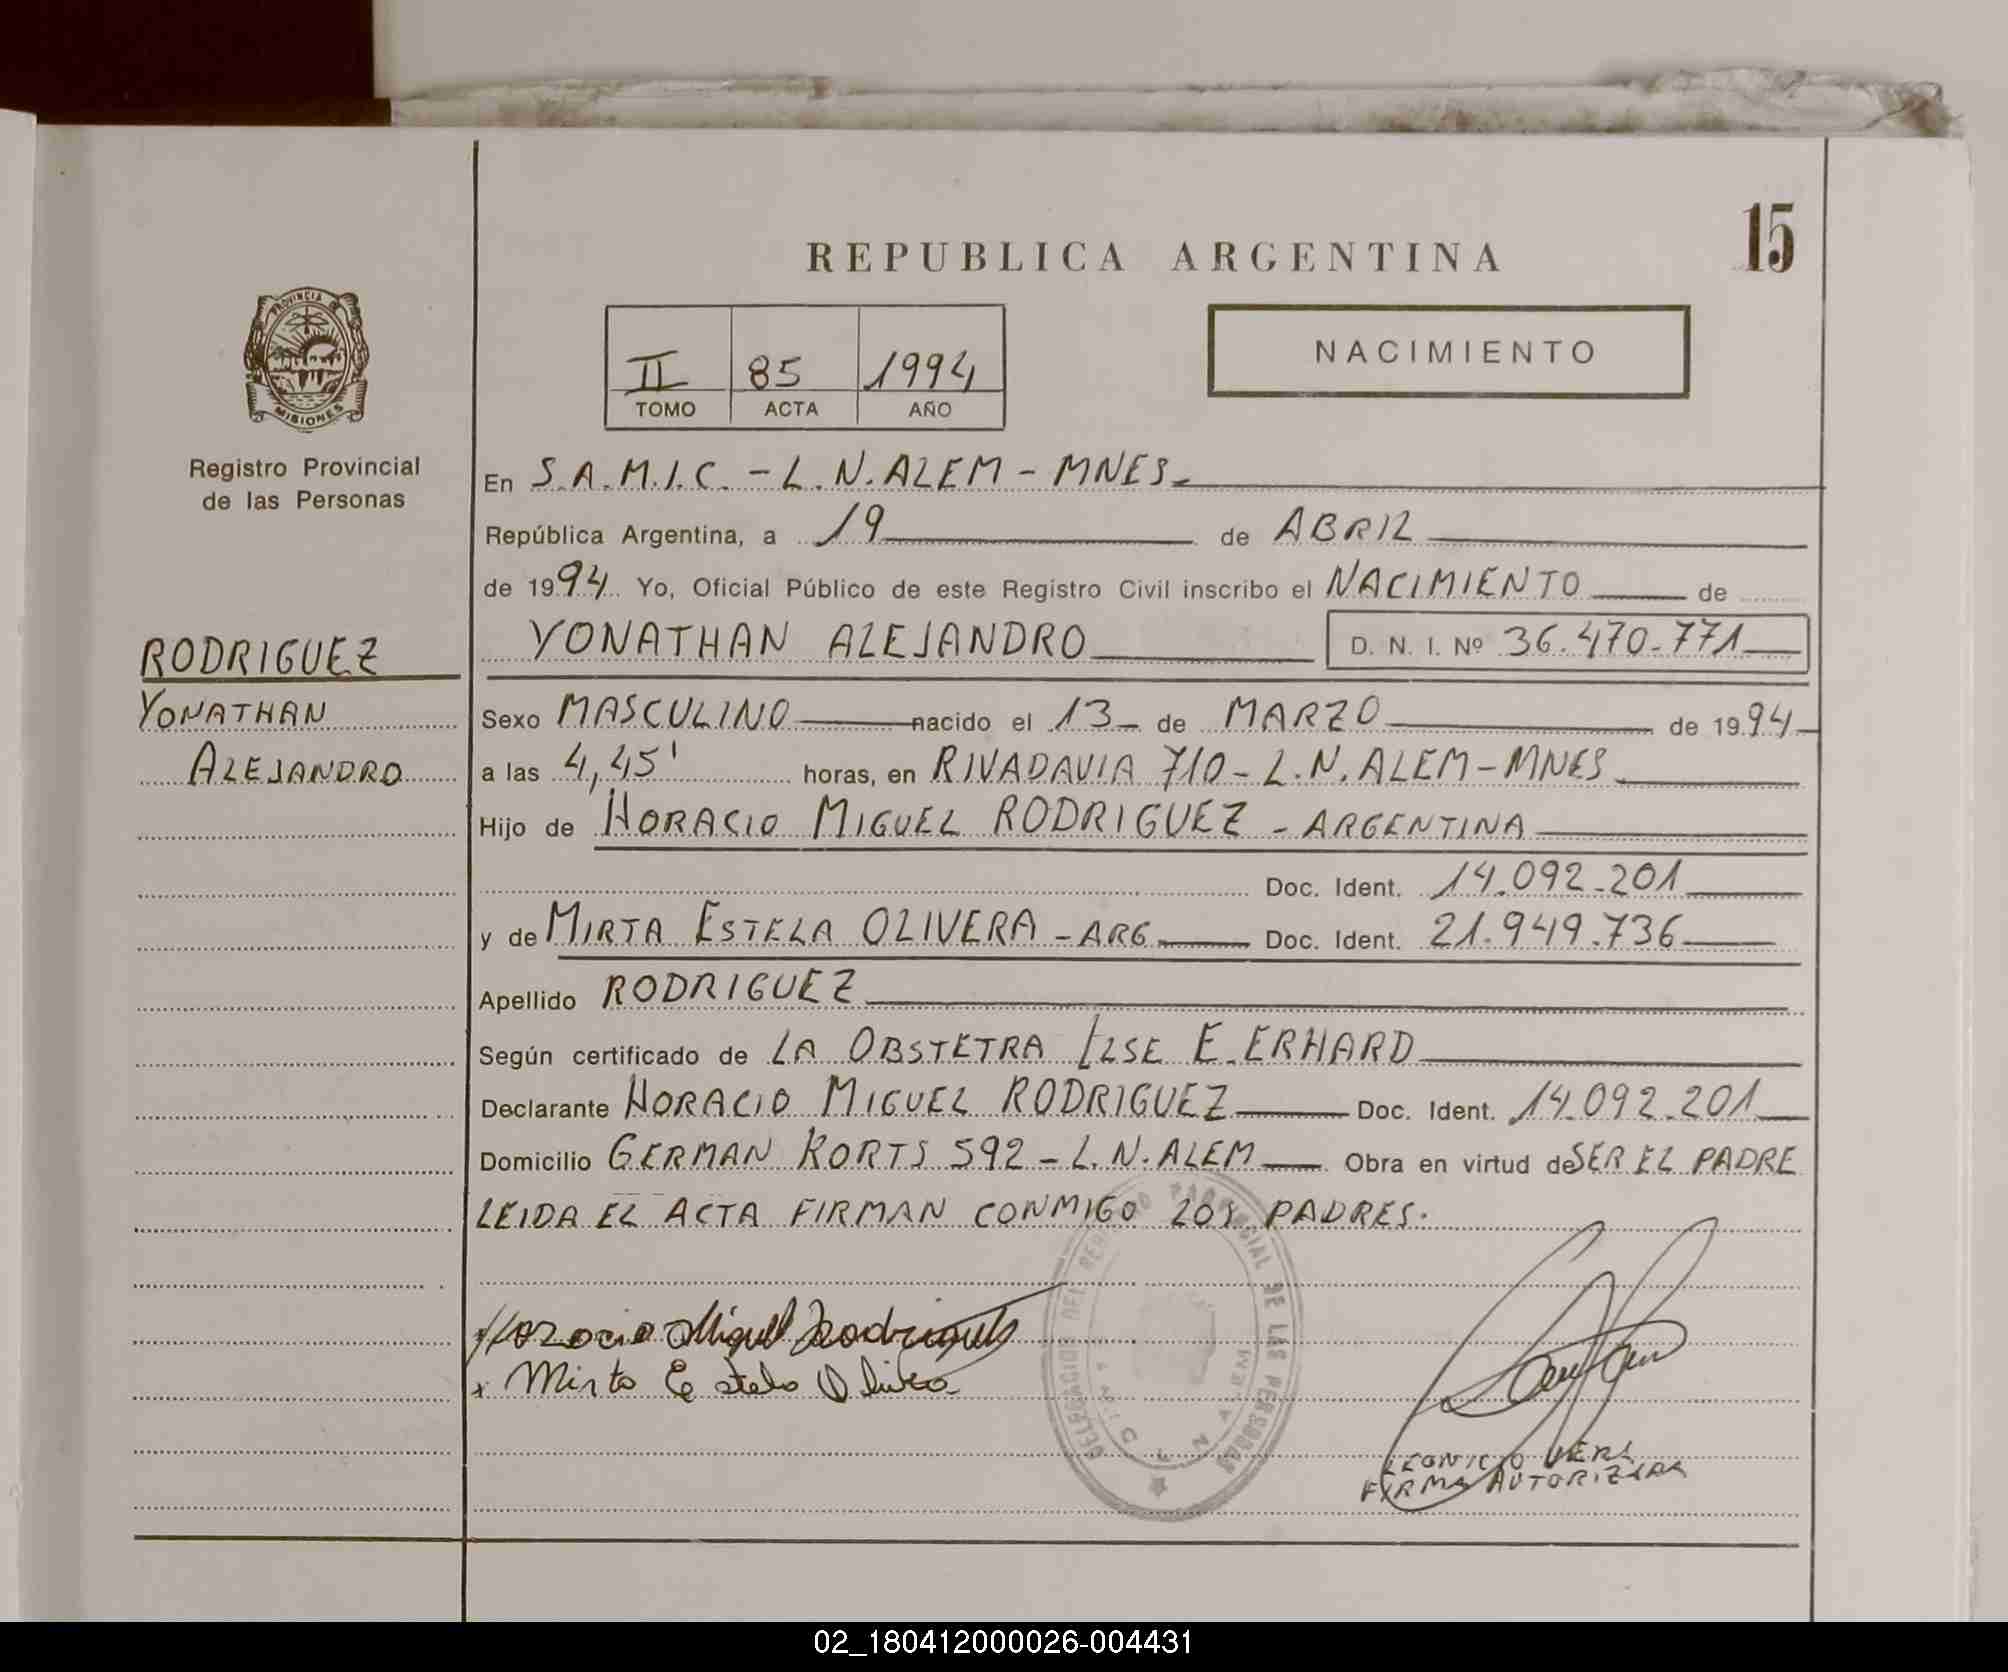 REPUBLICA ARGENTINA
15
PROVINCIA DE
MISIONES
Registro Provincial
de las Personas
II 85 1994
TOMO ACTA AÑO
NACIMIENTO
En S.A.M.I.C. - L.N.ALEM - MNES.
República Argentina, a 19 de ABRIL
de 1994 Yo, Oficial Público de este Registro Civil inscribo el NACIMIENTO de
YONATHAN ALEJANDRO D. N. I. Nº 36.470.771
RODRIGUEZ
YONATHAN
ALEJANDRO
Sexo MASCULINO nacido el 13 de MARZO de 1994
a las 4,45' horas, en RIVADAVIA 710 - L.N.ALEM - MNES.
Hijo de HORACIO MIGUEL RODRIGUEZ - ARGENTINA
Doc. Ident. 14.092.201
y de MIRTA ESTELA OLIVERA - ARG. Doc. Ident. 21.949.736
Apellido RODRIGUEZ
Según certificado de LA OBSTETRA ILSE E. ERHARD
Declarante HORACIO MIGUEL RODRIGUEZ Doc. Ident. 14.092.201
Domicilio GERMAN KORTS 592 - L.N.ALEM Obra en virtud de SER EL PADRE
LEIDA EL ACTA FIRMAN CONMIGO LOS PADRES.
DELEGACION DEL REGISTRO PROVINCIAL DE LAS PERSONAS
Horacio Miguel Rodriguez
x Mirta Estela Olivera
LEONICIO VERA
FIRMA AUTORIZADA
02_180412000026-004431